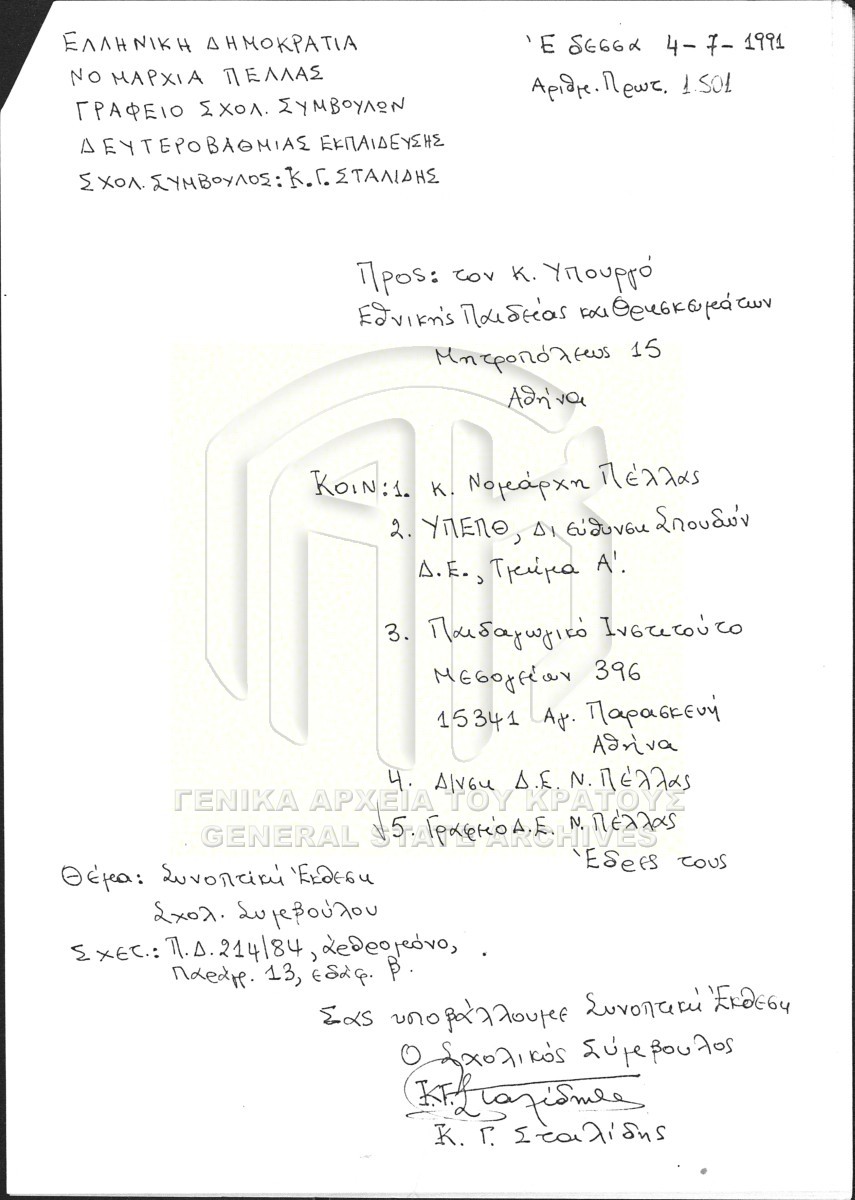 ΕΛΛΗΝΙΚΗ ΔΗΜΟΚΡΑΤΙΑ
ΝΟΜΑΡΧΙΑ ΠΕΛΛΑΣ
ΓΡΑΦΕΙΟ ΣΧΟΛ. ΣΥΜΒΟΥΛΩΝ
ΔΕΥΤΕΡΟΒΑΘΜΙΑΣ ΕΚΠΑΙΔΕΥΣΗΣ
ΣΧΟΛ. ΣΥΜΒΟΥΛΟΣ: Κ. Γ. ΣΤΑΛΙΔΗΣ
Έδεσσα 4-7-1991
Αριθμ. Πρωτ. 1501
Προς: τον κ. Υπουργό
Εθνικής Παιδείας και Θρησκευμάτων
Μητροπόλεως 15
Αθήνα
ΚΟΙΝ: 1. κ. Νομάρχη Πέλλας
2. ΥΠΕΠΘ, Διεύθυνση Σπουδών
Δ.Ε., Τμήμα Α'.
3. Παιδαγωγικό Ινστιτούτο
Μεσογείων 396
15341 Αγ. Παρασκευή
Αθήνα
4. Δ/νση Δ.Ε. Ν. Πέλλας
5. Γραφείο Δ.Ε. Ν. Πέλλας
Έδρες τους
ΓΕΝΙΚΑ ΑΡΧΕΙΑ ΤΟΥ ΚΡΑΤΟΥΣ
GENERAL STATE ARCHIVES
Θέμα: Συνοπτική Έκθεση
Σχολ. Συμβούλου
Σχετ.: Π.Δ. 214/84, άρθρο μόνο,
παράγρ. 13, εδάφ. β.
Σας υποβάλλουμε Συνοπτική Έκθεση
Ο Σχολικός Σύμβουλος
Κ.Γ. Σταλίδης
Κ. Γ. Σταλίδης